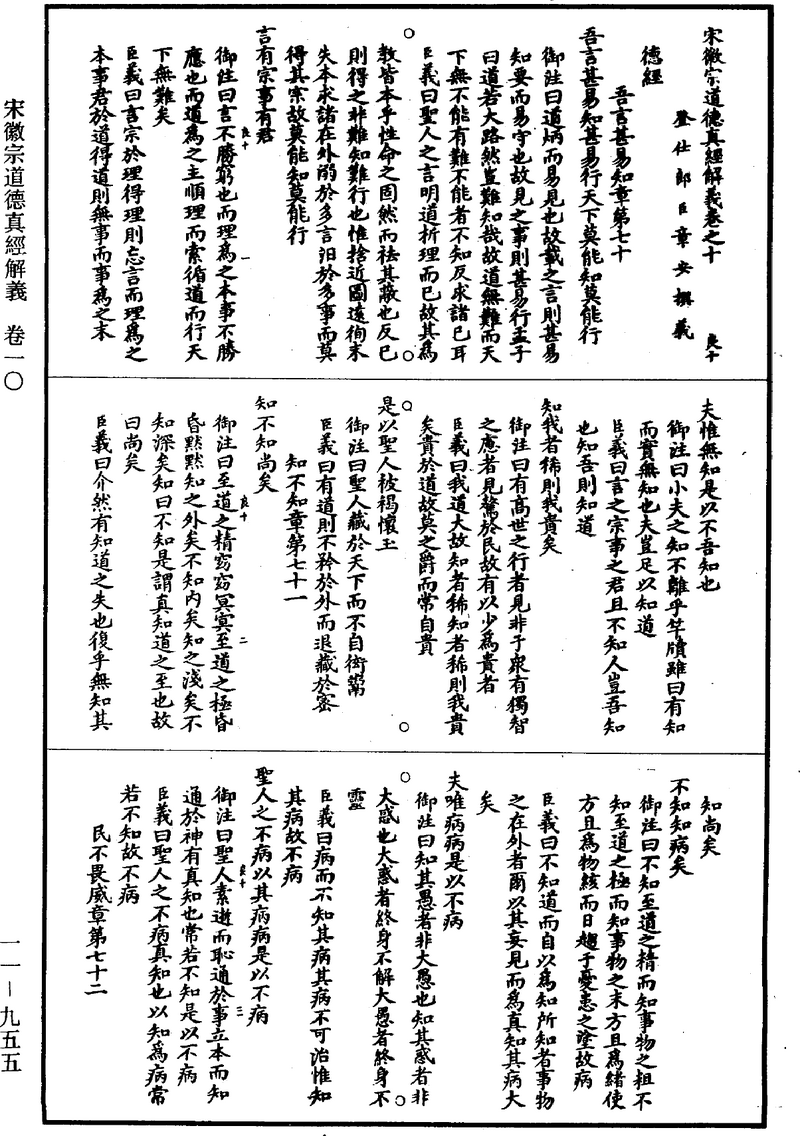 宋徽宗道德真經解義卷之十
登仕郎臣章安撰義
良十
德經
吾言甚易知章第七十
吾言甚易知甚易行天下莫能知莫能行
御注曰道炳而易見也故載之言則甚易
知要而易守也故見之事則甚易行孟子
曰道若大路然豈難知哉故道無難而天
下無不能有難不能者不知反求諸己耳
臣義曰聖人之言明道析理而已故其為
教皆本乎性命之固然而祛其蔽也反己
則得之非難知難行也惟捨近圖遠徇末
失本求諸在外溺於多言汩於多事而莫
得其宗故莫能知莫能行
言有宗事有君
御注曰言不勝窮也而理為之本事不勝
應也而道為之主順理而索循道而行天
下無難矣
臣義曰言宗於理得理則忘言而理為之
本事君於道得道則無事而事為之末
良十
一
夫惟無知是以不吾知也
御注曰小夫之知不離乎竿牘雖曰有知
而實無知也夫豈足以知道
臣義曰言之宗事之君且不知人豈吾知
也知吾則知道
知我者稀則我貴矣
御注曰有高世之行者見非于眾有獨智
之慮者見驁於民故有以少為貴者
臣義曰我道大故知者稀知者稀則我貴
矣貴於道故莫之爵而常自貴
是以聖人被褐懷玉
御注曰聖人藏於天下而不自衒鬻
臣義曰有道則不矜於外而退藏於密
知不知章第七十一
知不知尚矣
御注曰至道之精窈窈冥冥至道之極昏
昏默默知之外矣不知內矣知之淺矣不
知深矣知曰不知是謂真知道之至也故
曰尚矣
臣義曰介然有知道之失也復乎無知其
良十
二
知尚矣
不知知病矣
御注曰不知至道之精而知事物之粗不
知至道之極而知事物之末方且為緒使
方且為物絯而日趨于憂患之塗故病
臣義曰不知道而自以為知所知者事物
之在外者爾以其妄見而為真知其病大
矣
夫唯病病是以不病
御注曰知其愚者非大愚也知其惑者非
大惑也大惑者終身不解大愚者終身不
靈
臣義曰病而不知其病其病不可治惟知
其病故不病
聖人之不病以其病病是以不病
御注曰聖人素逝而恥通於事立本而知
通於神有真知也常若不知是以不病
臣義曰聖人之不病真知也以知為病常
若不知故不病
民不畏威章第七十二
良十
三
宋徽宗道德真經解義　卷一〇
一一－九五五